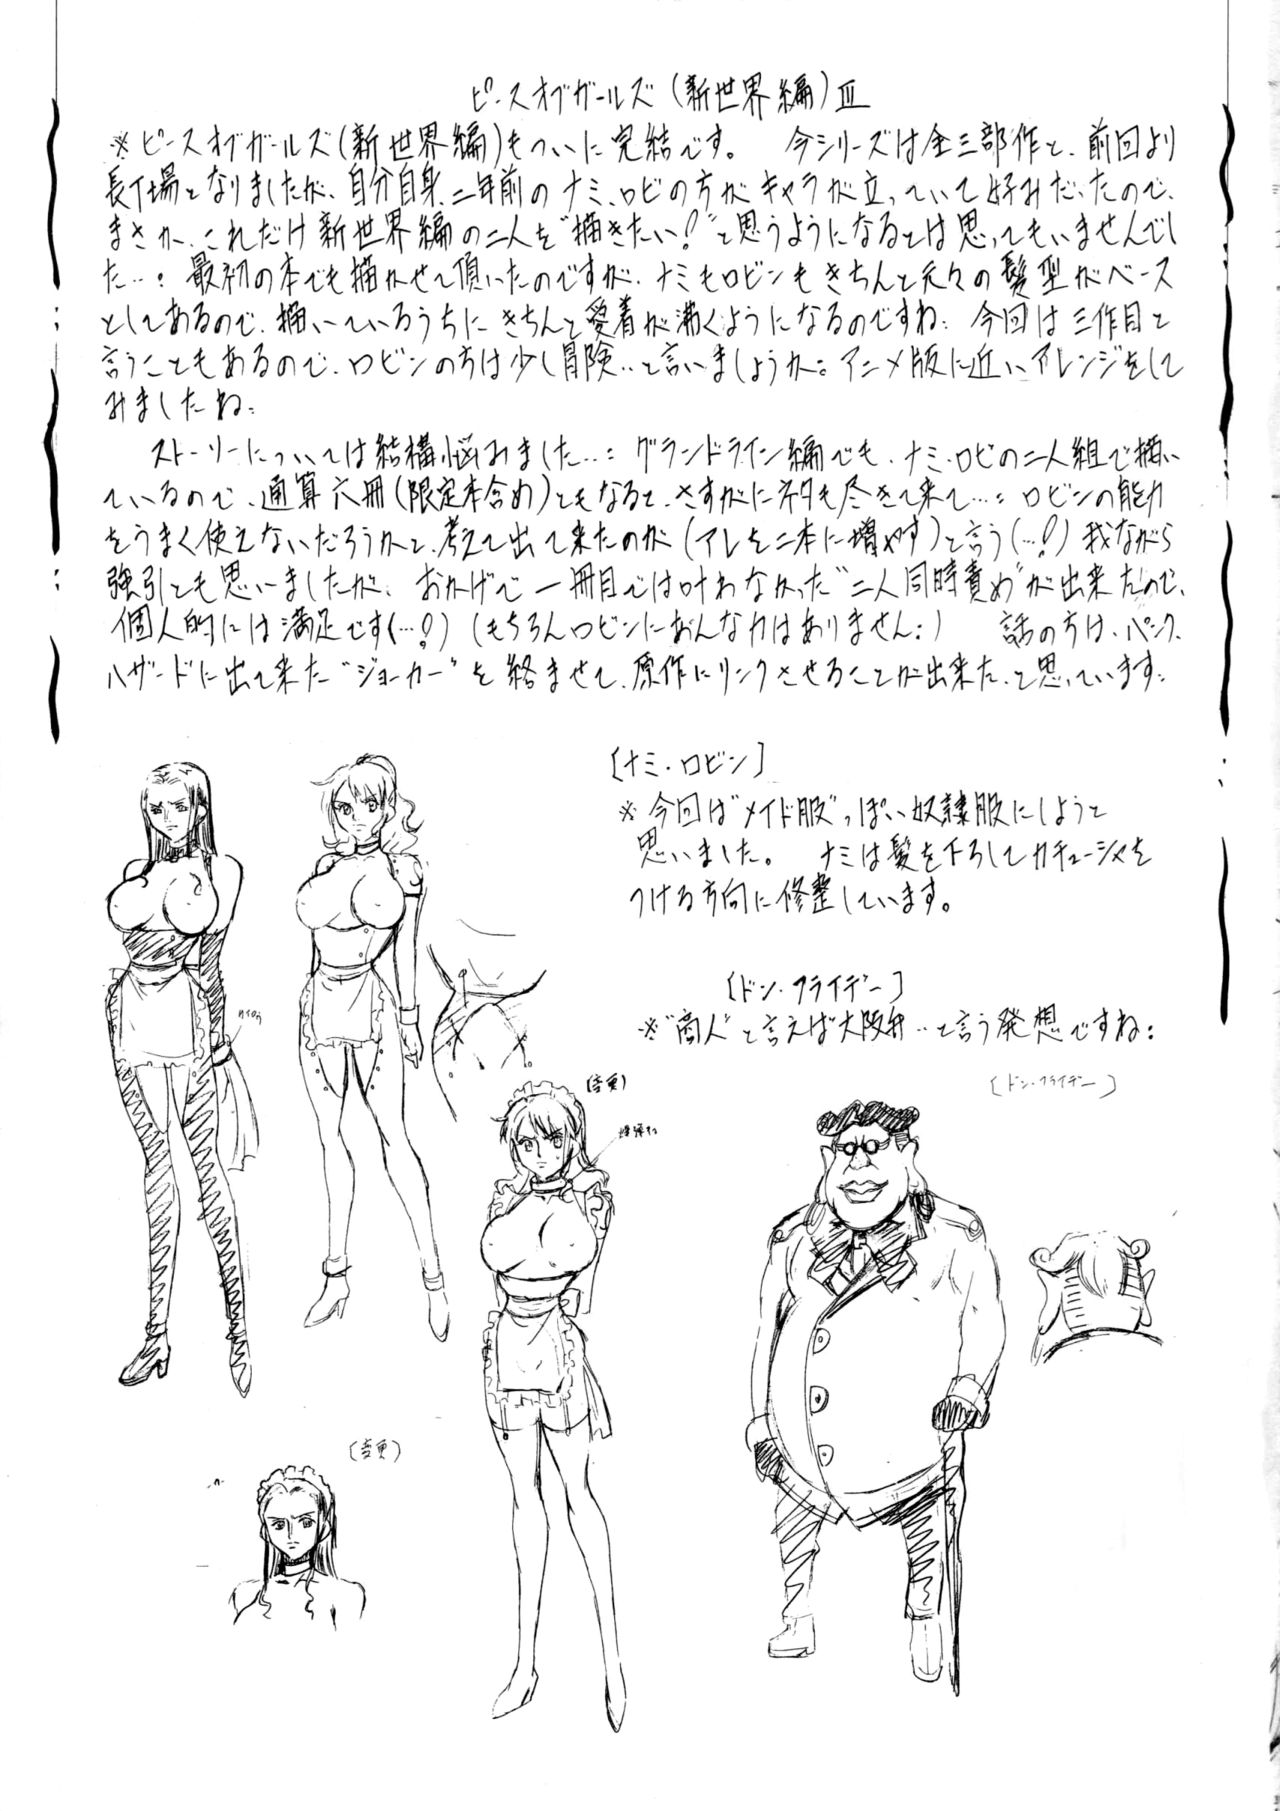 ピースオブガールズ(新世界編)Ⅲ
※ピースオブガールズ(新世界編)もついに完結です。 今シリーズは全三部作と、前回より
長丁場となりましたが、自分自身、二年前のナミ、ロビの方がキャラが立っていて好みだったので、
まさか、これだけ新世界編の二人を“描きたい!”と思うようになるとは思ってもいませんでし
た…: 最初の本でも描かせて頂いたのですが、ナミもロビンもきちんと元々の髪型がベース
としてあるので、描いているうちにきちんと愛着が沸くようになるのですね: 今回は三作目と
言うこともあるので、ロビンの方は少し冒険‥と言いましょうか: アニメ版に近いアレンジをして
みましたね:
ストーリーについては結構悩みました…: グランドライン編でも、ナミ・ロビの二人組で描い
ているので、通算六冊(限定本含め)ともなると、さすがにネタも尽きて来て…: ロビンの能力
をうまく使えないだろうかと、考えて出て来たのが(アレを二本に増やす)と言う(…!?)我ながら
強引とも思いましたが、おかげで一冊目では叶わなかった“二人同時責め”が出来たので、
個人的には満足です(…!?)(もちろんロビンにあんな力はありません:) 話の方は、パンク、
ハザードに出て来た“ジョーカー”を絡ませて、原作にリンクさせることが出来た、と思っています:
[ナミ・ロビン]
※今回は“メイド服”っぽい奴隷服にしようと
思いました。 ナミは髪を下ろしてカチューシャを
つける方向に修整しています。
[ドン・フライデー]
※“商人”と言えば大阪弁‥と言う発想ですね:
[ドン・フライデー]
(変更)
(変更)